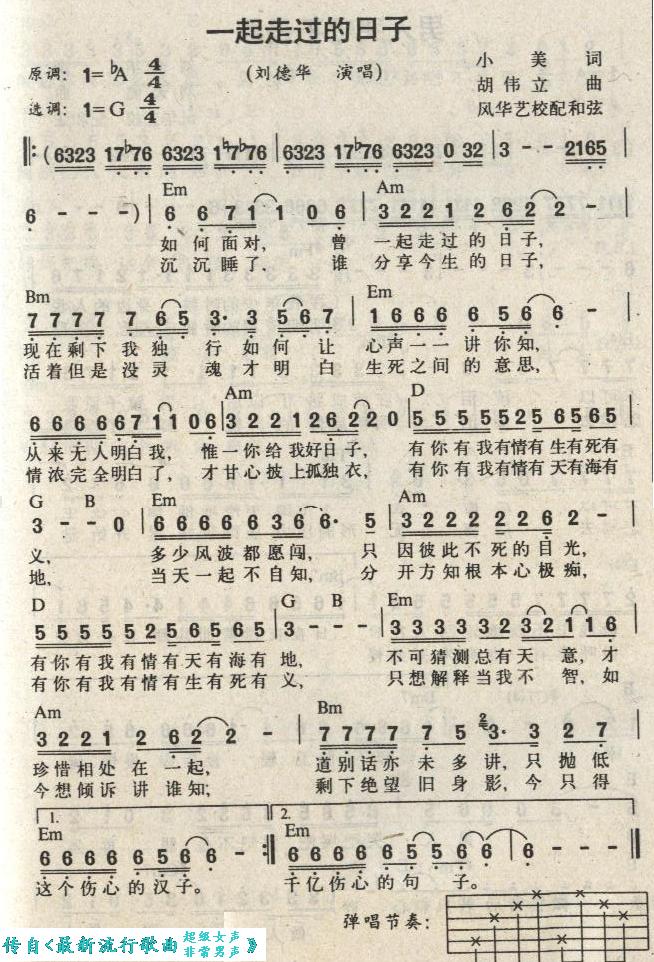 一起走过的日子
原调: 1=♭A 4/4
(刘德华 演唱)
小美 词
胡伟立 曲
选调: 1=G 4/4
风华艺校配和弦
‖: (6323 17♭76 6323 1♮7♭76 | 6323 17♭76 6323 0 32 | 3 - - 2165 |
Em Am
6 - - -) | 6 6 7 1 1 0 6 | 3 2 2 1 2 6 2 2 - |
如何面对, 曾 一起走过的日子,
沉沉睡了, 谁 分享今生的日子,
Bm Em
7 7 7 7 7 6 5 3· 3 5 6 7 | 1 6 6 6 6 5 6 6 - |
现在剩下我独 行如何让 心声一一讲你知,
活着但是没灵 魂才明白 生死之间的意思,
Am D
6 6 6 6 6 7 1 1 0 6 | 3 2 2 1 2 6 2 2 0 | 5 5 5 5 5 5 2 5 5 6 5 6 5
从来无人明白我, 惟一你给我好日子, 有你有我有情有生有死有
情浓完全明白了, 才甘心披上孤独衣, 有你有我有情有天有海有
G B Em Am
3 - - 0 | 6 6 6 6 6 3 6 6· 5 | 3 2 2 2 2 2 6 2 - |
义, 多少风波都愿闯, 只 因彼此不死的目光,
地, 当天一起不自知, 分 开方知根本心极痴,
D G B Em
5 5 5 5 5 5 2 5 6 5 6 5 | 3 - - - | 3 3 3 3 3 2 3 2 1 1 6 |
有你有我有情有天有海有 地, 不可猜测总有天 意, 才
有你有我有情有生有死有 义, 只想解释当我不 智, 如
Am Bm
3 2 2 1 2 6 2 2 - | 7 7 7 7 7 5 2 3· 3 2 7 |
珍惜相处在一起, 道别话亦未多讲, 只抛低
今想倾诉讲谁知; 剩下绝望旧身影, 今只得
1. 2.
Em Em
6 6 6 6 6 5 6 6 - :‖ 6 6 6 6 6 5 5 6 6 | 6 - - - ‖
这个伤心的汉子。 千亿伤心的句 子。
弹唱节奏:
传自《最新流行歌曲 超级女声 非常男声》